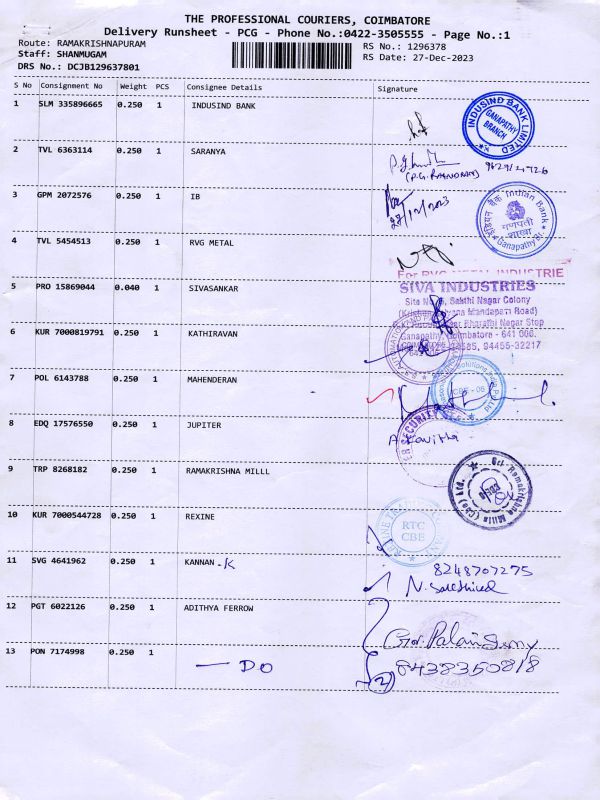 THE PROFESSIONAL COURIERS, COIMBATORE
Delivery Runsheet - PCG - Phone No.:0422-3505555 - Page No.:1
Route: RAMAKRISHNAPURAM
RS No.: 1296378
Staff: SHANMUGAM
RS Date: 27-Dec-2023
DRS No.: DCJB129637801
S No Consignment No Weight PCS Consignee Details Signature
1 SLM 335896665 0.250 1 INDUSIND BANK
INDUSIND BANK LIMITED
GANAPATHY
BRANCH
2 TVL 6363114 0.250 1 SARANYA
3 GPM 2072576 0.250 1 IB
इंडियन बैंक Indian Bank
गणपती
शाखा
Ganapathy Br.
4 TVL 5454513 0.250 1 RVG METAL
For RVG METAL INDUSTRIE
5 PRO 15869044 0.040 1 SIVASANKAR
SIVA INDUSTRIES
Sakthi Nagar Colony
Mandapam Road)
Bharathi Nagar Stop
Ganapathy, Coimbatore - 641 006.
94455-32217
6 KUR 7000819791 0.250 1 KATHIRAVAN
7 POL 6143788 0.250 1 MAHENDERAN
CBE - 06
8 EDQ 17576550 0.250 1 JUPITER
SECURITY
A Kavitha
9 TRP 8268182 0.250 1 RAMAKRISHNA MILLL
Sri Ramakrishna Mills (Cbe) Ltd.
10 KUR 7000544728 0.250 1 REXINE
RTC
CBE
11 SVG 4641962 0.250 1 KANNAN -K
8248707275
12 PGT 6022126 0.250 1 ADITHYA FERROW
13 PON 7174998 0.250 1
— DO
8438350818
2